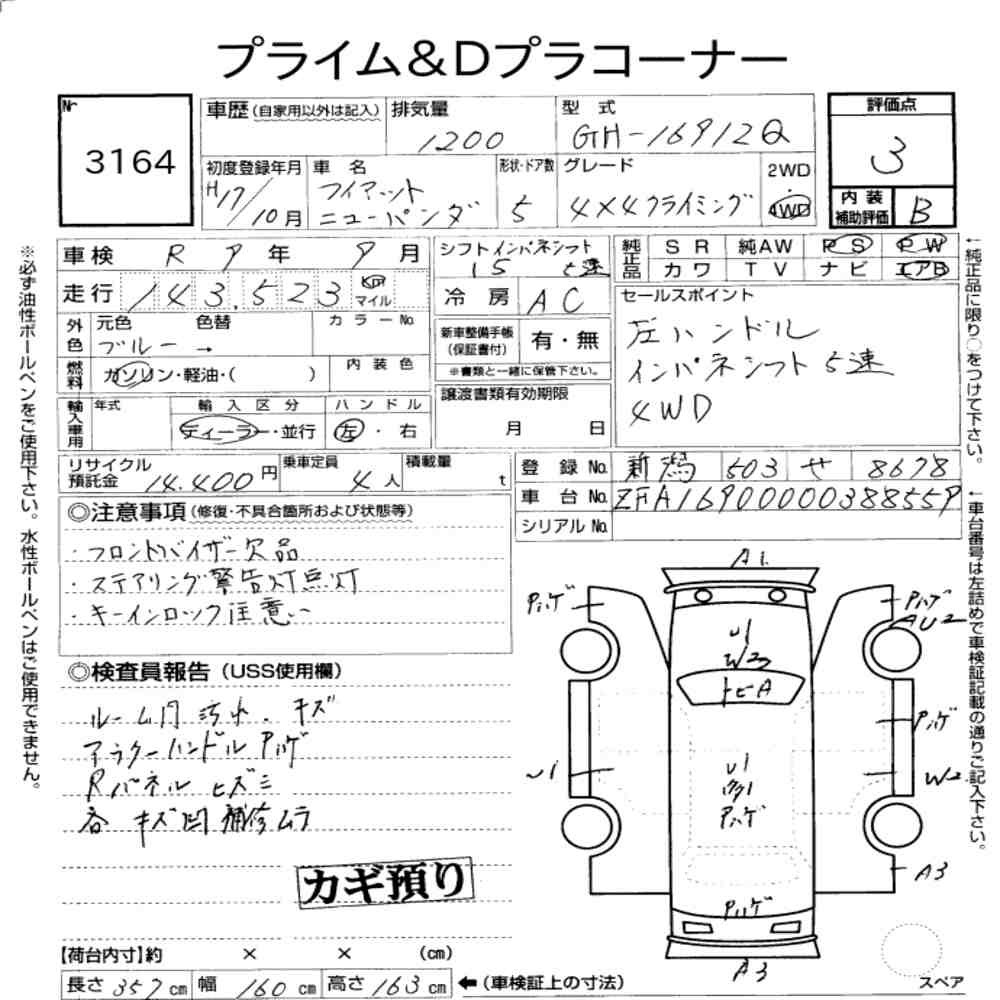 プライム&Dプラコーナー
Nr
3164
車歴(自家用以外は記入)
排気量
1200
型式
GH-16912Q
評価点
3
初度登録年月
H17/10月
車名
フィアット
ニューパンダ
形状・ドア数
5
グレード
4×4クライミング
2WD
4WD
内装
補助評価
B
車検 R 7年 9月
シフト インパネシフト
15 5速
純正品
SR 純AW PS PW
カワ TV ナビ エアB
走行 143,523 km マイル
冷房 AC
セールスポイント
左ハンドル
インパネシフト5速
4WD
外色
元色 色替
ブルー →
カラーNo.
新車整備手帳
(保証書付)
有・無
※書類と一緒に保管下さい。
燃料
ガソリン・軽油・( )
内装色
譲渡書類有効期限
月 日
輸入車用
年式
輸入区分
ディーラー・並行
ハンドル
左・右
リサイクル
預託金
14.400円
乗車定員
4人
積載量
t
登録No. 新潟 503 せ 8678
車台No. ZFA16900000388559
シリアルNo.
◎注意事項(修復・不具合箇所および状態等)
・フロントバイザー欠品
・ステアリング警告灯点灯
・キーインロック注意!!
◎検査員報告(USS使用欄)
ルーム内汚れ、キズ
アウターハンドルPハゲ
Rパネルヒズミ
各キズ凹補修ムラ
カギ預り
A1
Pハゲ
Pハゲ
AU2
U1
W3
トビA
Pハゲ
U1
U1
Pハゲ
W2
A3
Pハゲ
A3
スペア
【荷台内寸】約 × × (cm)
長さ 357cm 幅 160cm 高さ 163cm ←(車検証上の寸法)
※必ず油性ボールペンをご使用下さい。水性ボールペンはご使用できません。
←純正品に限り○をつけて下さい。
←車台番号は左詰めで車検証記載の通りご記入下さい。